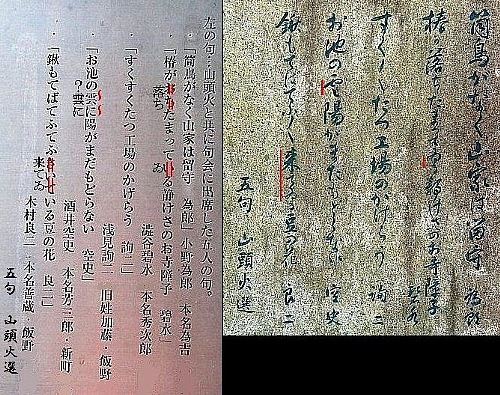 左の句…山頭火と共に句会に出席した五人の句。
・「筒鳥がなく山家は留守 為郎」小野為郎 本名為吉
・「椿がたまっている静けさのお寺障子 碧水」
落ち
ゐ
澁谷碧水 本名秀次郎
・「すくすくたつ工場のかげろう 詢二」
浅見詢二 旧姓加藤・飯野
・「お池の雲に陽がまだもどらない 空史」
?雲に
酒井空史 本名芳三郎・新町
・「鍬もてばてふてふいる豆の花 良二」
来てゐ
木村良二 本名善蔵・飯野
五句 山頭火選
筒鳥がなく山家は留守 為郎
椿落ちたまつてゐる静けさのお寺障子
碧水
すくすくたつ工場のかげろう 詢二
お池の雲陽がまだもどらない 空史
鍬もてばてふてふ来てゐる豆の花 良二
五句 山頭火選